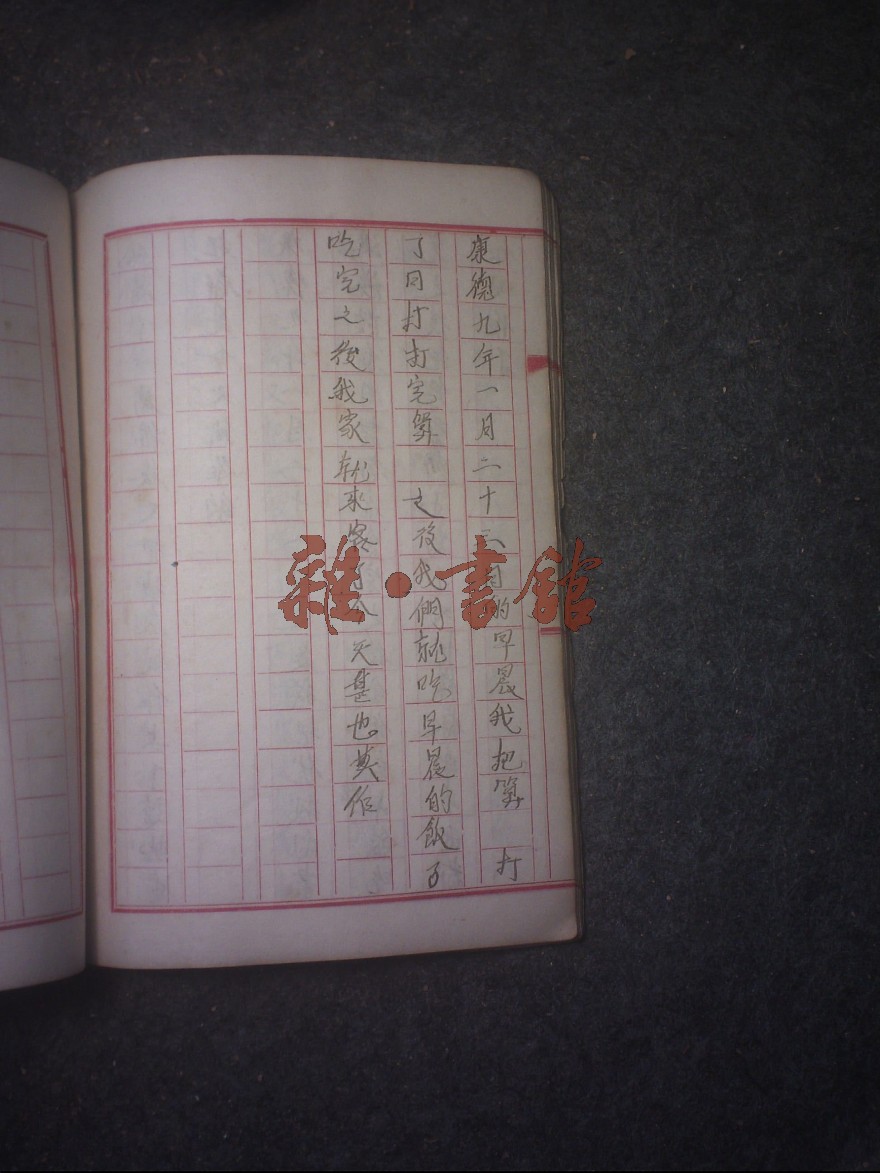 康德九年一月二十三日的早晨我把算 打
了回打打完算 之後我們就吃早晨的飯了
吃完之後我家就來客了今天是也莫作
雜·書館